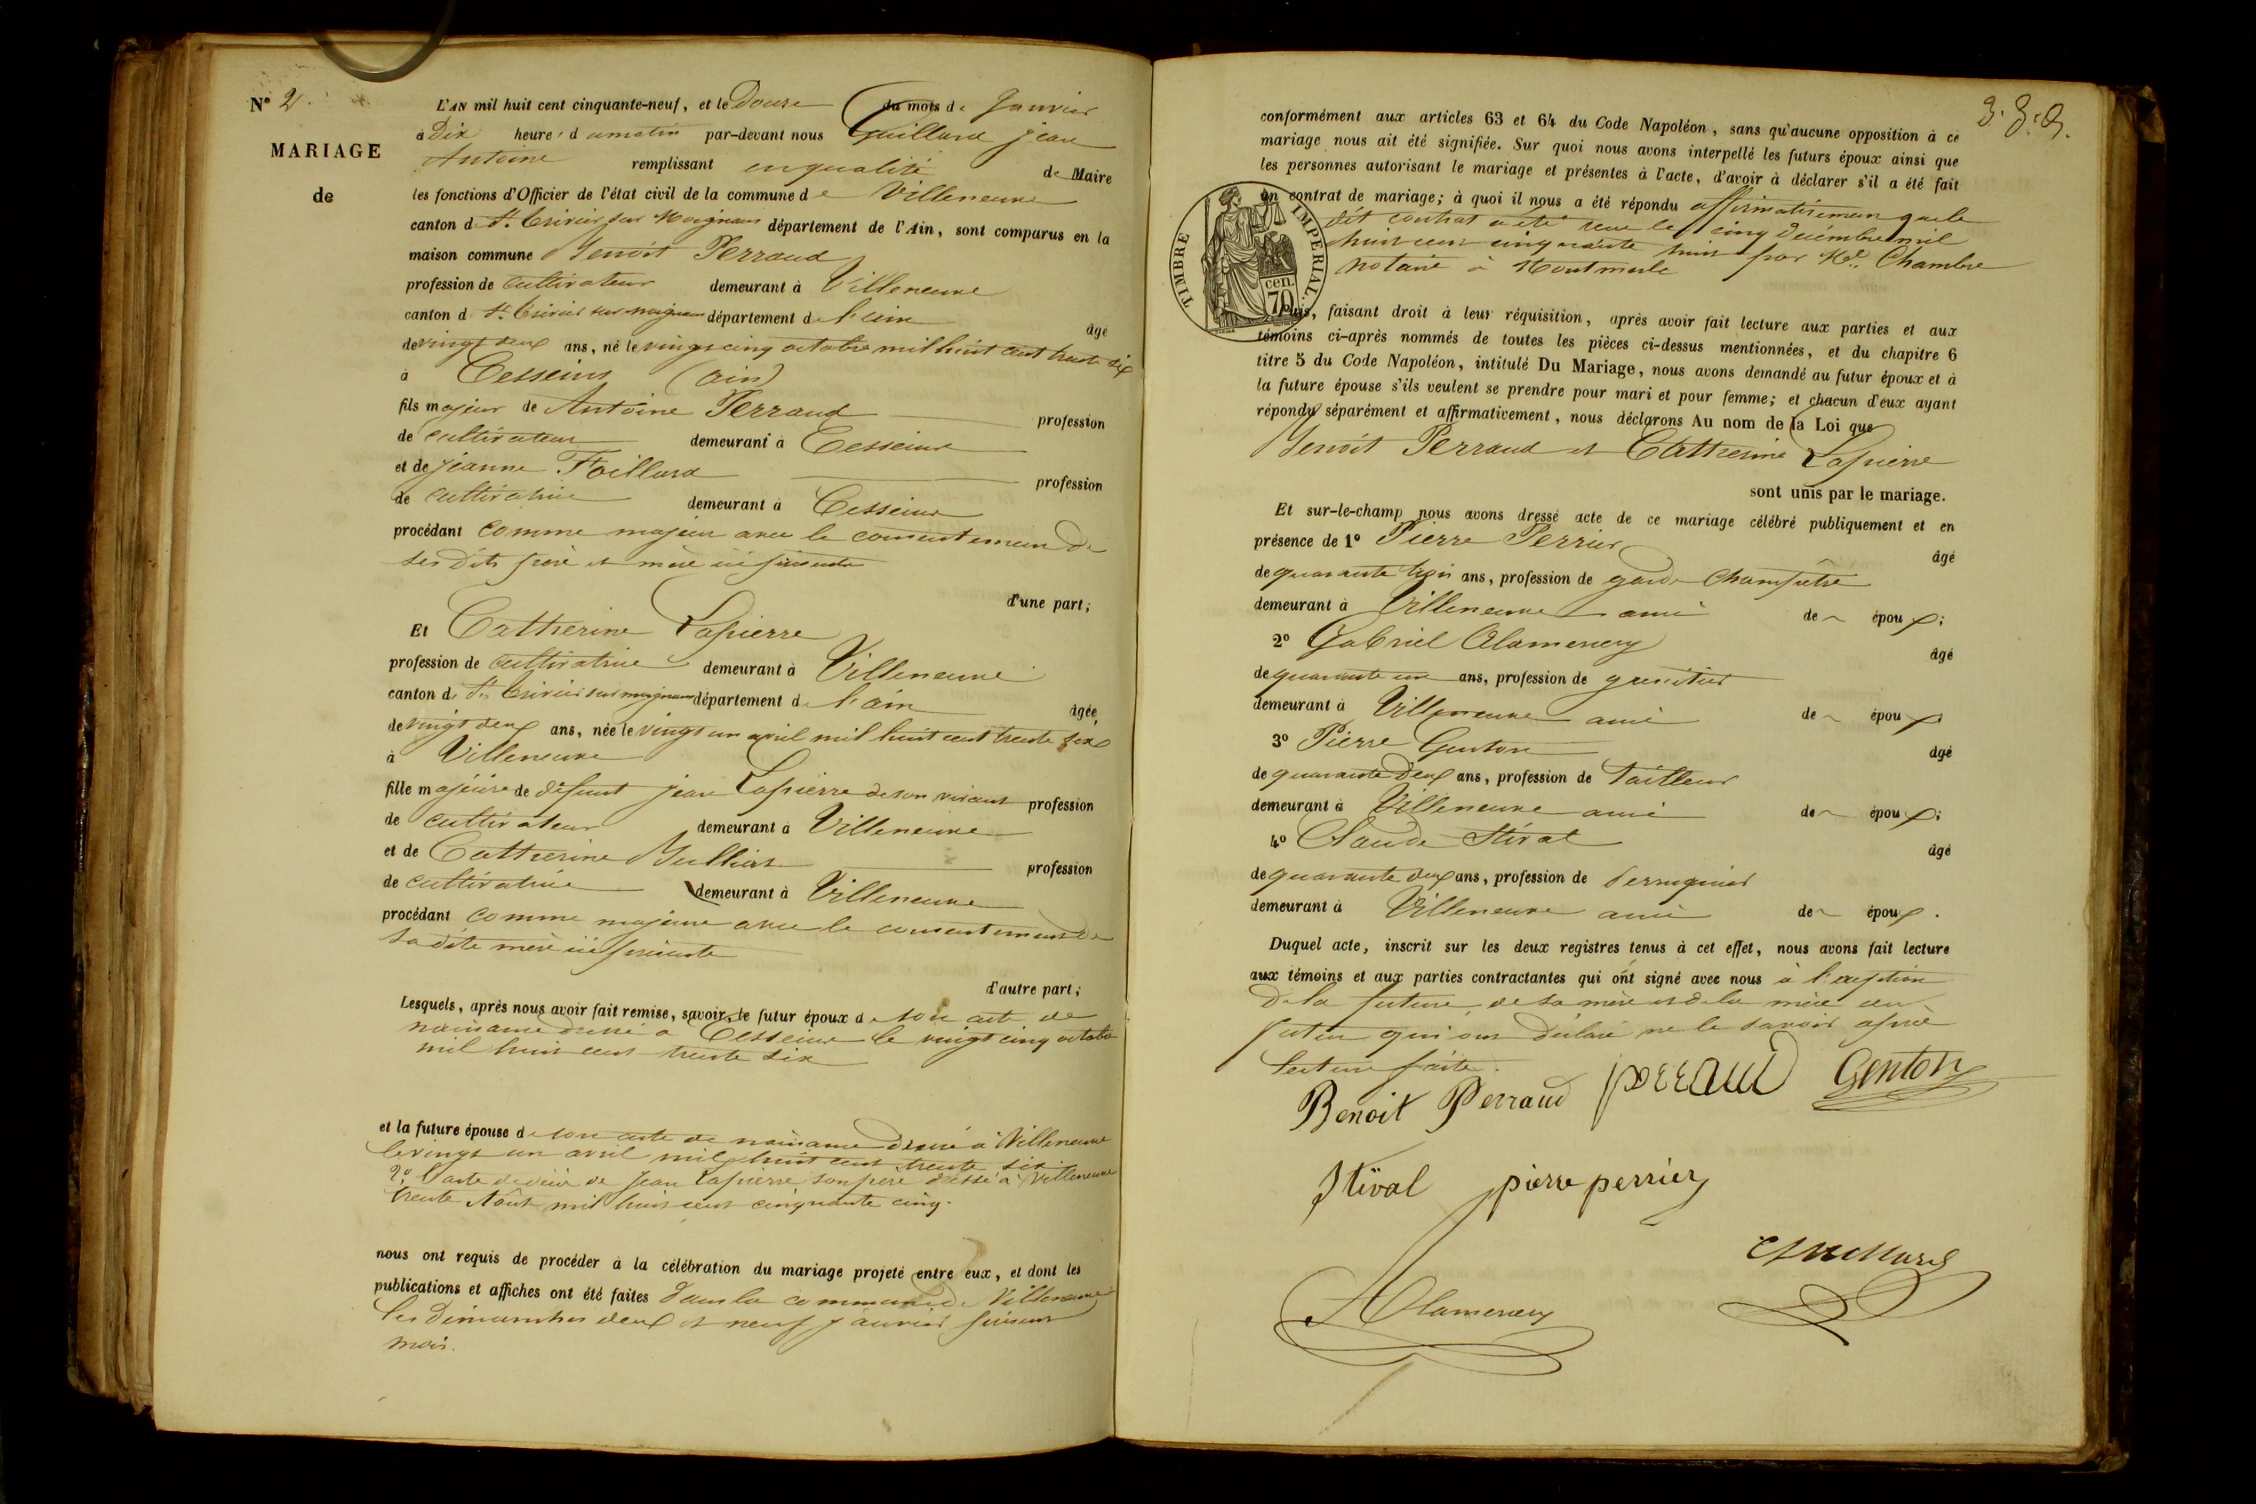 N° 2.
MARIAGE
de
L'AN mil huit cent cinquante-neuf, et le Douze du mois de Janvier
à Dix heure s du matin par-devant nous jean
Antoine remplissant en qualité de Maire
les fonctions d'Officier de l'état civil de la commune de Villeneuve
canton de St. Trivier sur Moignans département de l'Ain, sont comparus en la
maison commune Benoit Perraud
profession de cultivateur demeurant à Villeneuve
canton d St. Trivier sur moignans département de l'ain âgé
de vingt deux ans, né le vingt cinq octobre mil huit cent trente six
à Cesseins (ain)
fils majeur de Antoine Perraud profession
de cultivateur demeurant à Cesseins
et de jeanne Foillard profession
de cultivatrice demeurant à Cesseins
procédant comme majeur avec le consentement de
ses dits père et mère ici présents
d'une part;
Et Catherine Lapierre
profession de cultivatrice demeurant à Villeneuve
canton de St. Trivier sur moignans département de l'ain âgée
de vingt deux ans, née le vingt un avril mil huit cent trente six
à Villeneuve
fille majeure de défunt jean Lapierre de son vivant profession
de cultivateur demeurant à Villeneuve
et de Catherine profession
de cultivatrice demeurant à Villeneuve
procédant comme majeure avec le consentement de
sa dite mère ici présente
d'autre part;
Lesquels, après nous avoir fait remise, savoir, le futur époux de son acte de
naissance dressé à Cesseins le vingt cinq octobre
mil huit cent trente six
et la future épouse de son acte de naissance dressé à Villeneuve
le vingt un avril mil huit cent trente six
2°. l'acte de décès de Jean Lapierre son père dressé à Villeneuve
trente Août mil huit cent cinquante cinq.
nous ont requis de procéder à la célébration du mariage projeté entre eux, et dont les
publications et affiches ont été faites dans la commune de Villeneuve
les dimanches deux et neuf janvier présent
mois.
conformément aux articles 63 et 64 du Code Napoléon, sans qu'aucune opposition à ce
mariage nous ait été signifiée. Sur quoi nous avons interpellé les futurs époux ainsi que
les personnes autorisant le mariage et présentes à l'acte, d'avoir à déclarer s'il a été fait
un contrat de mariage; à quoi il nous a été répondu affirmativement que le
dit contrat a été reçu le cinq décembre mil
huit cent cinquante huit par Me. Chambre
notaire à Montmerle
TIMBRE IMPERIAL.
70 cen.
Puis, faisant droit à leur réquisition, après avoir fait lecture aux parties et aux
témoins ci-après nommés de toutes les pièces ci-dessus mentionnées, et du chapitre 6
titre 5 du Code Napoléon, intitulé Du Mariage, nous avons demandé au futur époux et à
la future épouse s'ils veulent se prendre pour mari et pour femme; et chacun d'eux ayant
répondu séparément et affirmativement, nous déclarons Au nom de la Loi que
Benoit Perraud et Catherine Lapierre
sont unis par le mariage.
Et sur-le-champ nous avons dressé acte de ce mariage célébré publiquement et en
présence de 1° Pierre Perrier âgé
de quarante trois ans, profession de garde Champêtre
demeurant à Villeneuve ami de époux;
2° Gabriel Alamercery âgé
de quarante un ans, profession de
demeurant à Villeneuve ami de époux;
3° Pierre Genton âgé
de quarante deux ans, profession de Tailleur
demeurant à Villeneuve ami de époux;
4° Claude Stival âgé
de quarante deux ans, profession de Perruquier
demeurant à Villeneuve ami de époux.
Duquel acte, inscrit sur les deux registres tenus à cet effet, nous avons fait lecture
aux témoins et aux parties contractantes qui ont signé avec nous à l'exeption
de la future, de sa mère et de la mère du
futur qui ont déclaré ne le savoir après
lecture faite.
Benoit Perraud perraud Genton
Stival pierre perrier
Alamercery